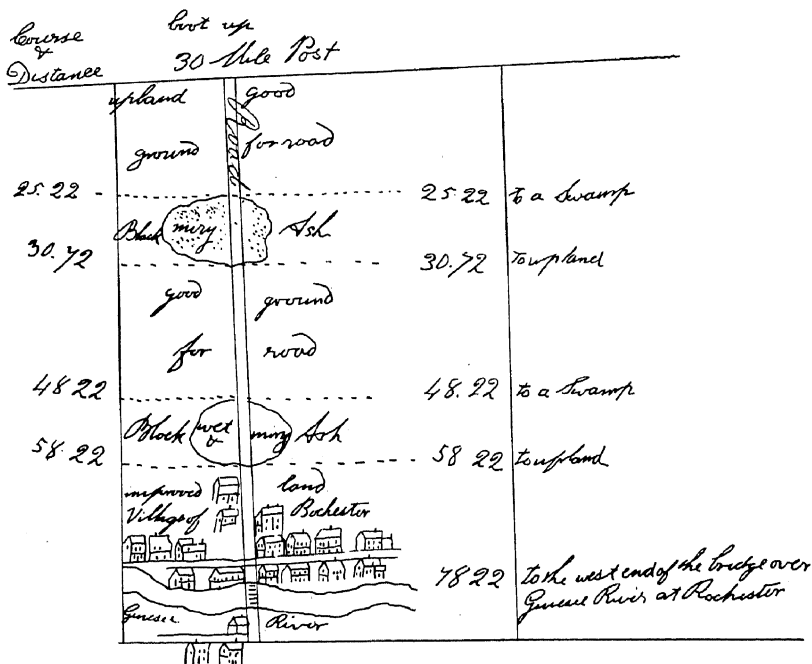 Course
&
Distance
boot up
30 Mile Post
upland good
Road
ground for road
25.22 25.22 to a Swamp
Black miry Ash
30.72 30.72 to upland
good ground
for road
48 22 48.22 to a Swamp
Black wet & miry Ash
58.22 58 22 to upland
improved land
Village of Rochester
78 22 to the west end of the bridge over
Genesee River at Rochester
Genesee River